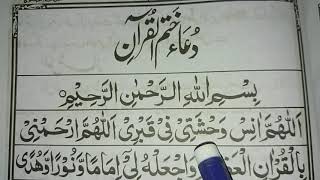 دُعَاءُ خَتْمِ الْقُرْاٰنِ
بِسْمِ اللّٰهِ الرَّحْمٰنِ الرَّحِيْمِ
اَللّٰهُمَّ اٰنِسْ وَحْشَتِىْ فِىْ قَبْرِىْ اَللّٰهُمَّ ارْحَمْنِىْ
بِالْقُرْاٰنِ الْعَظِ وَاجْعَلْهُ لِىْ اِمَامًا وَّنُوْرًا وَّهُدًى